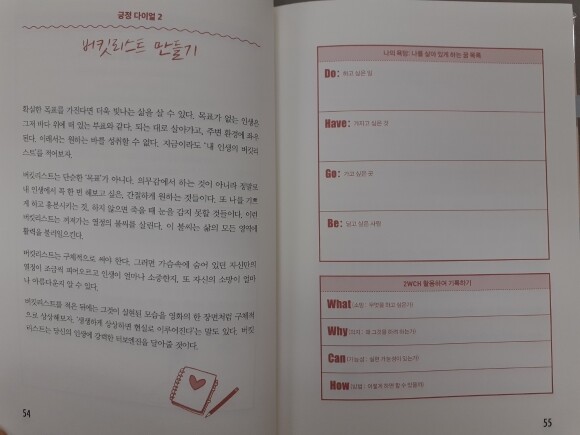 긍정 다이얼 2
버킷리스트 만들기
확실한 목표를 가진다면 더욱 빛나는 삶을 살 수 있다. 목표가 없는 인생은
그저 바다 위에 떠 있는 부표와 같다. 되는 대로 살아가고, 주변 환경에 좌우
된다. 이래서는 원하는 바를 성취할 수 없다. 지금이라도 '내 인생의 버킷리
스트'를 적어보자.
버킷리스트는 단순한 '목표'가 아니다. 의무감에서 하는 것이 아니라 정말로
내 인생에서 꼭 한 번 해보고 싶은, 간절하게 원하는 것들이다. 또 나를 기쁘
게 하고 흥분시키는 것, 하지 않으면 죽을 때 눈을 감지 못할 것들이다. 이런
버킷리스트는 꺼져가는 열정의 불씨를 살린다. 이 불씨는 삶의 모든 영역에
활력을 불러일으킨다.
버킷리스트는 구체적으로 써야 한다. 그러면 가슴속에 숨어 있던 자신만의
열정이 조금씩 피어오르고 인생이 얼마나 소중한지, 또 자신의 소망이 얼마
나 아름다운지 알 수 있다.
버킷리스트를 적은 뒤에는 그것이 실현된 모습을 영화의 한 장면처럼 구체적
으로 상상해보자. '생생하게 상상하면 현실로 이루어진다'는 말도 있다. 버킷
리스트는 당신의 인생에 강력한 터보엔진을 달아줄 것이다.
54
나의 욕망: 나를 살아 있게 하는 꿈 목록
Do: 하고 싶은 일
Have: 가지고 싶은 것
Go: 가고 싶은 곳
Be: 되고 싶은 사람
2WCH 활용하여 기록하기
What (소망 : 무엇을 하고 싶은가)
Why (의지 : 왜 그것을 하려 하는가)
Can (가능성 : 실현 가능성이 있는가)
How (방법 : 어떻게 하면 할 수 있을까)
55